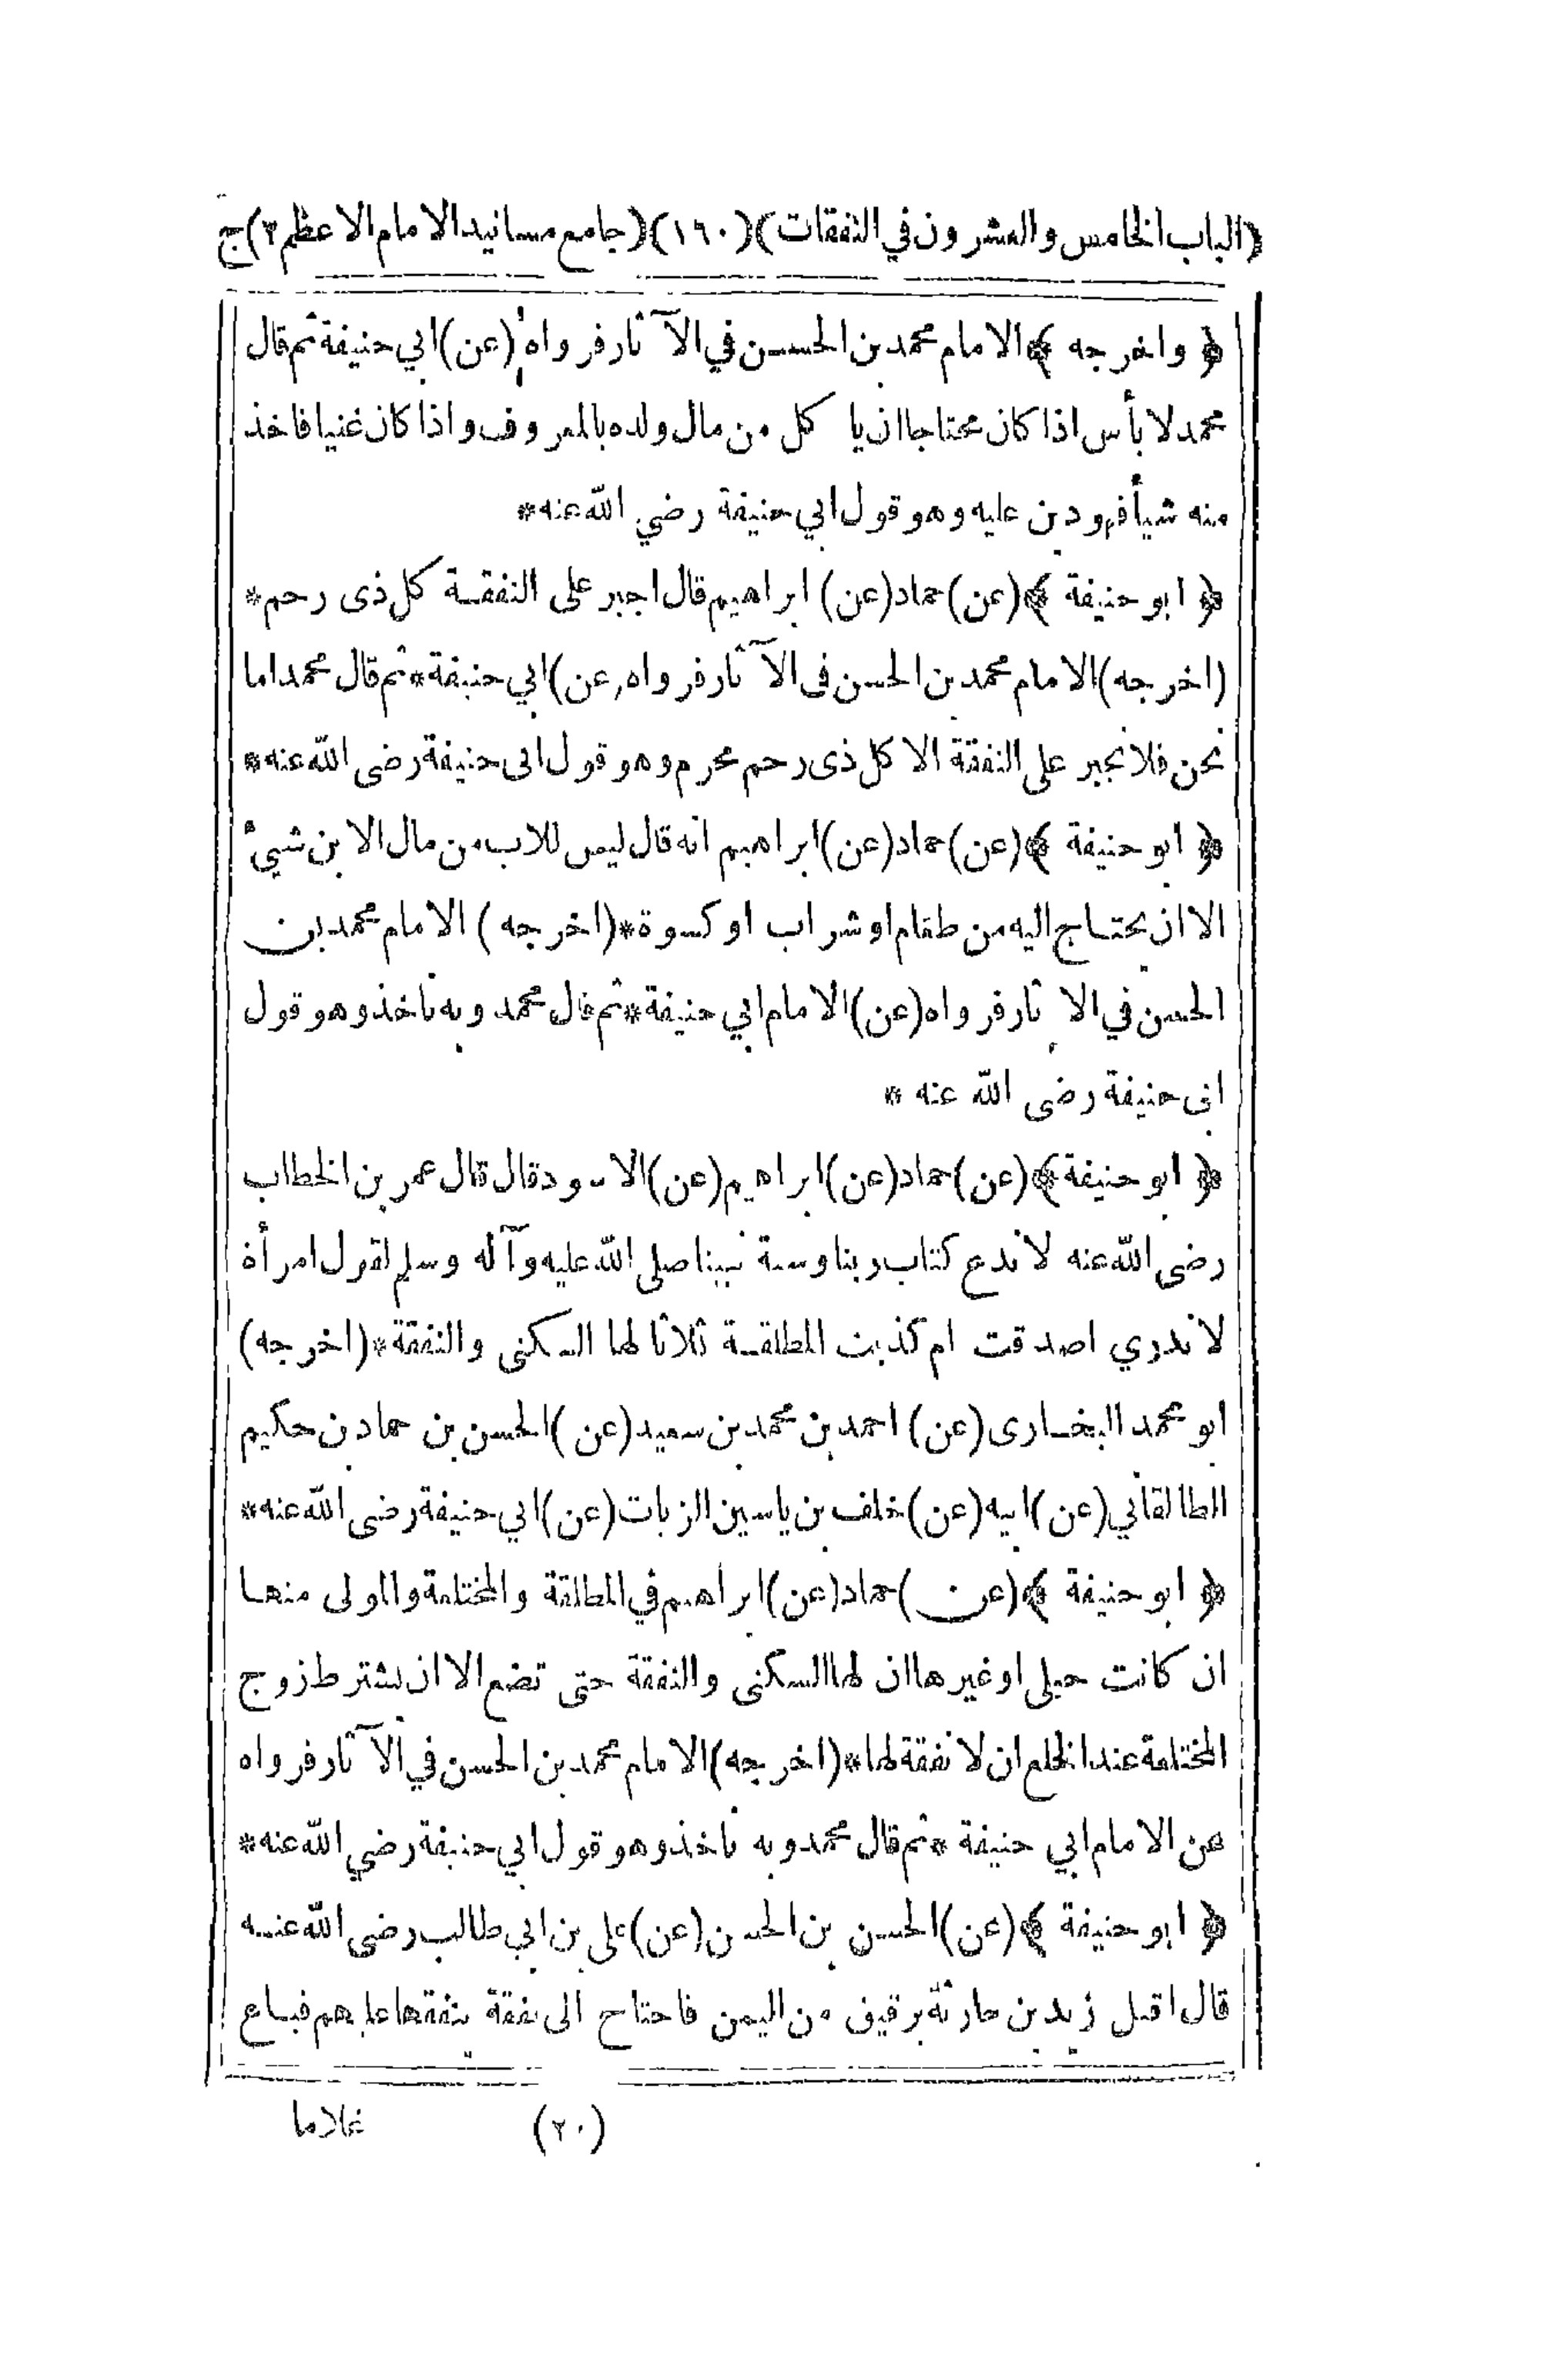 (الباب الخامس والعشرون في النفقات)(١٦٠)(جامع مسانيد الامام الاعظم ٢)ج
﴿ واخرجه ﴾ الامام محمد بن الحسن في الآثار فرواه (عن) ابي حنيفة ثم قال
محمد لا بأس اذا كان محتاجا ان يا كل من مال ولده بالمعروف واذا كان غنيا فاخذ
منه شيأ فهو دين عليه وهو قول ابي حنيفة رضي الله عنه *
﴿ ابو حنيفة ﴾ (عن) حماد (عن) ابراهيم قال اجبر على النفقة كل ذى رحم *
(اخرجه) الامام محمد بن الحسن فى الآثار فرواه (عن) ابي حنيفة * ثم قال محمد اما
نحن فلا نجبر على النفقة الا كل ذى رحم محرم وهو قول ابى حنيفة رضى الله عنه *
﴿ ابو حنيفة ﴾ (عن) حماد (عن) ابراهيم انه قال ليس للاب من مال الابن شيئ
الا ان يحتاج اليه من طعام او شراب او كسوة * (اخرجه) الامام محمد بن
الحسن في الاثار فرواه (عن) الامام ابي حنيفة * ثم قال محمد وبه ناخذ وهو قول
ابى حنيفة رضى الله عنه *
﴿ ابو حنيفة ﴾ (عن) حماد (عن) ابراهيم (عن) الاسود قال قال عمر بن الخطاب
رضى الله عنه لا ندع كتاب ربنا وسنة نبينا صلى الله عليه وآله وسلم لقول امرأة
لا ندري اصدقت ام كذبت المطلقة ثلاثا لها السكنى والنفقة * (اخرجه)
ابو محمد البخارى (عن) احمد بن محمد بن سعيد (عن) الحسن بن حماد بن حكيم
الطالقاني (عن) ابيه (عن) خلف بن ياسين الزيات (عن) ابي حنيفة رضى الله عنه *
﴿ ابو حنيفة ﴾ (عن) حماد (عن) ابراهيم في المطلقة والمختلعة والمولى منها
ان كانت حبلى او غيرها ان لها السكنى والنفقة حتى تضع الا ان يشترط زوج
المختلعة عند الخلع ان لا نفقة لها * (اخرجه) الامام محمد بن الحسن في الآثار فرواه
عن الامام ابي حنيفة * ثم قال محمد وبه ناخذ وهو قول ابي حنيفة رضي الله عنه *
﴿ ابو حنيفة ﴾ (عن) الحسن بن الحسن (عن) على بن ابي طالب رضى الله عنه
قال اقبل زيد بن حارثة برقيق من اليمن فاحتاج الى نفقة ينفقها عليهم فباع
(٢٠) غلاما